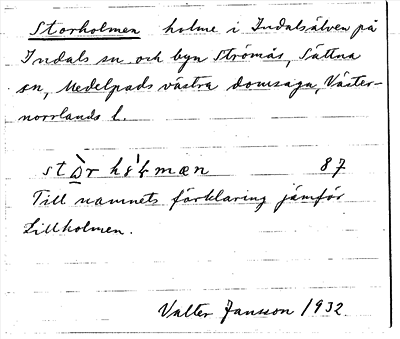 Storholmen holme i Indalsälven på
Indals sn och byn Strömås, Sättna
sn, Medelpads västra domsaga, Väster-
norrlands l.
87
Till namnets förklaring jämför
Lillholmen.
Valter Jansson 1932